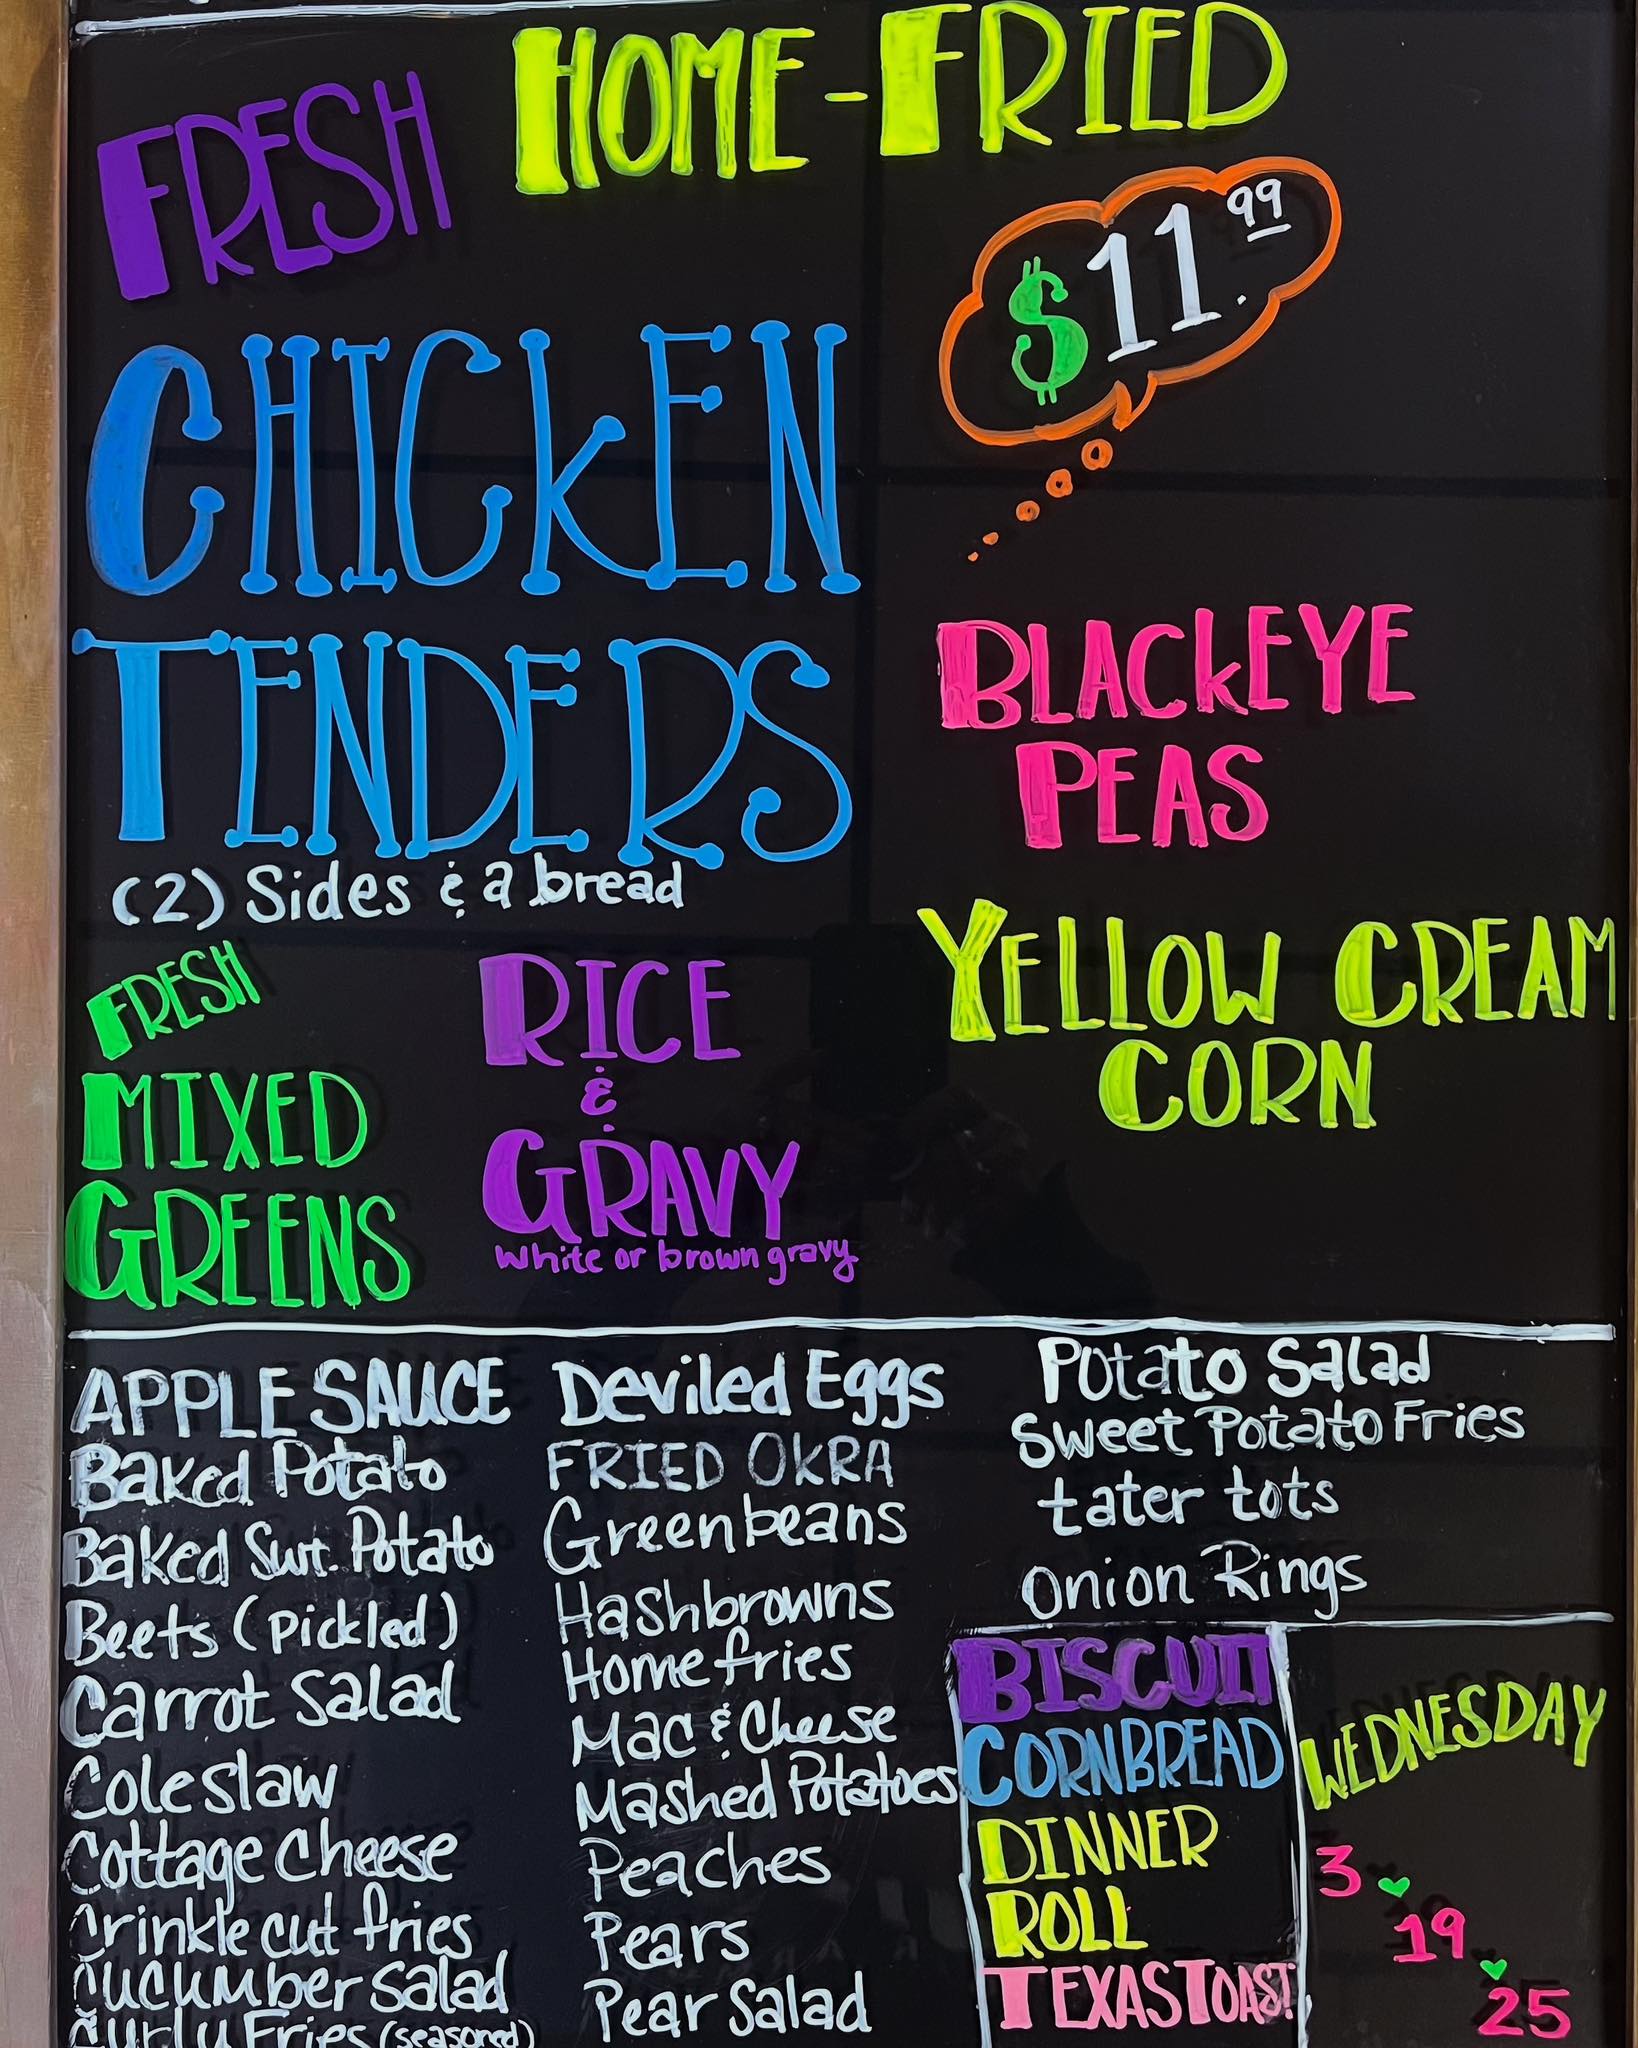 FRESH HOME-FRIED
$11.99
CHICKEN
TENDERS
(2) Sides & a bread
BLACKEYE
PEAS
YELLOW CREAM
CORN
FRESH
MIXED
GREENS
RICE
&
GRAVY
white or brown gravy
APPLE SAUCE
Baked Potato
Baked Swt. Potato
Beets (pickled)
Carrot Salad
Coleslaw
Cottage Cheese
Crinkle cut fries
Cucumber Salad
Curly Fries (seasoned)
Deviled Eggs
FRIED OKRA
Greenbeans
Hashbrowns
Home fries
Mac & Cheese
Mashed Potatoes
Peaches
Pears
Pear Salad
Potato Salad
Sweet Potato Fries
tater tots
Onion Rings
BISCUIT
CORNBREAD
DINNER
ROLL
TEXAS TOAST
WEDNESDAY
3
19
25